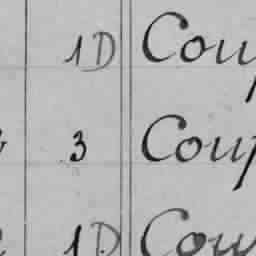 1D Coup
3 Coup
1D Coup